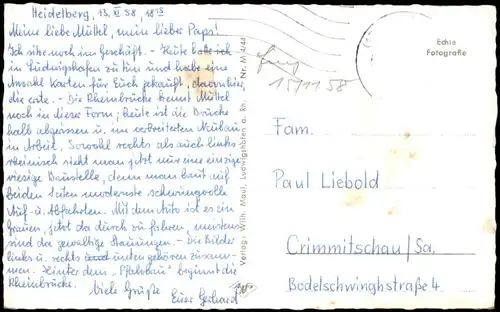 Heidelberg, 13. XI. 58, 18 15
Meine liebe Muttel, mein lieber Paps!
Ich sitze noch im Geschäft. - Heute hatte ich
in Ludwigshafen zu tun und habe eine
Anzahl Karten für Euch gekauft, davon hier
die erste. - Die Rheinbrücke kennt Muttel
noch in dieser Form; heute ist die Brücke
halb abgerissen u. im verbreiterten Neubau
in Arbeit. Sowohl rechts als auch links-
rheinisch sieht man jetzt nur eine einzige
riesige Baustelle, denn man baut auf
beiden Seiten modernste schwungvolle
Auf- u. Abfahrten. Mit dem Auto ist es ein
Grauen, jetzt da durch zu fahren, meistens
sind da gewaltige Stauungen. - Die Bilder
links u. rechts unten gehören zusam-
men. Hinter dem "Pfalzbau" beginnt die
Rheinbrücke. Viele Grüße
Euer Gerhard
Verlag: Wilh. Maul, Ludwigshafen a. Rh. Nr. M 4/44
Echte
Fotografie
15/11 58
Fam.
Paul Liebold
Crimmitschau/Sa.
Bodelschwinghstraße 4.